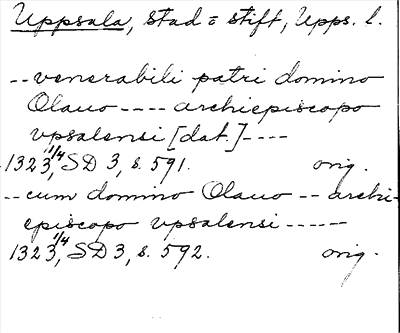 Uppsala, stad o stift, Upps. l.
-- venerabili patri domino
Olauo ---- archiepiscopo
vpsalensi [dat.] ----
1323 1/4, SD 3, s. 591. orig.
-- cum domino Olauo -- archi-
episcopo vpsalensi -----
1323 1/4, SD 3, s. 592. orig.